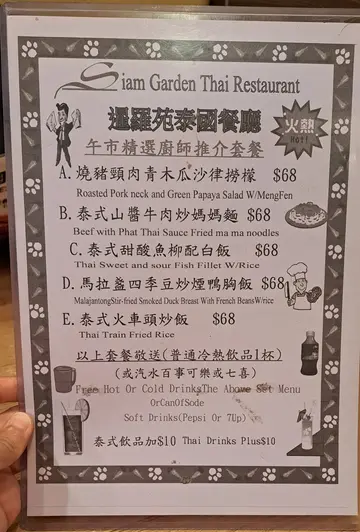 Siam Garden Thai Restaurant
暹羅苑泰國餐廳
火熱
Hot!
午市精選廚師推介套餐
A. 燒豬頸肉青木瓜沙律撈檬 $68
Roasted Pork neck and Green Papaya Salad W/MengFen
B. 泰式山醬牛肉炒媽媽麵 $68
Beef with Phat Thai Sauce Fried ma ma noodles
C. 泰式甜酸魚柳配白飯 $68
Thai Sweet and sour Fish Fillet W/Rice
D. 馬拉盞四季豆炒煙鴨胸飯 $68
MalajantongStir-fried Smoked Duck Breast With French BeansW/rice
E. 泰式火車頭炒飯 $68
Thai Train Fried Rice
以上套餐敬送(普通冷熱飲品1杯)
(或汽水百事可樂或七喜)
Free Hot Or Cold DrinksThe Above Set Menu
OrCanOfSode
Soft Drinks(Pepsi Or 7Up)
泰式飲品加$10 Thai Drinks Plus$10